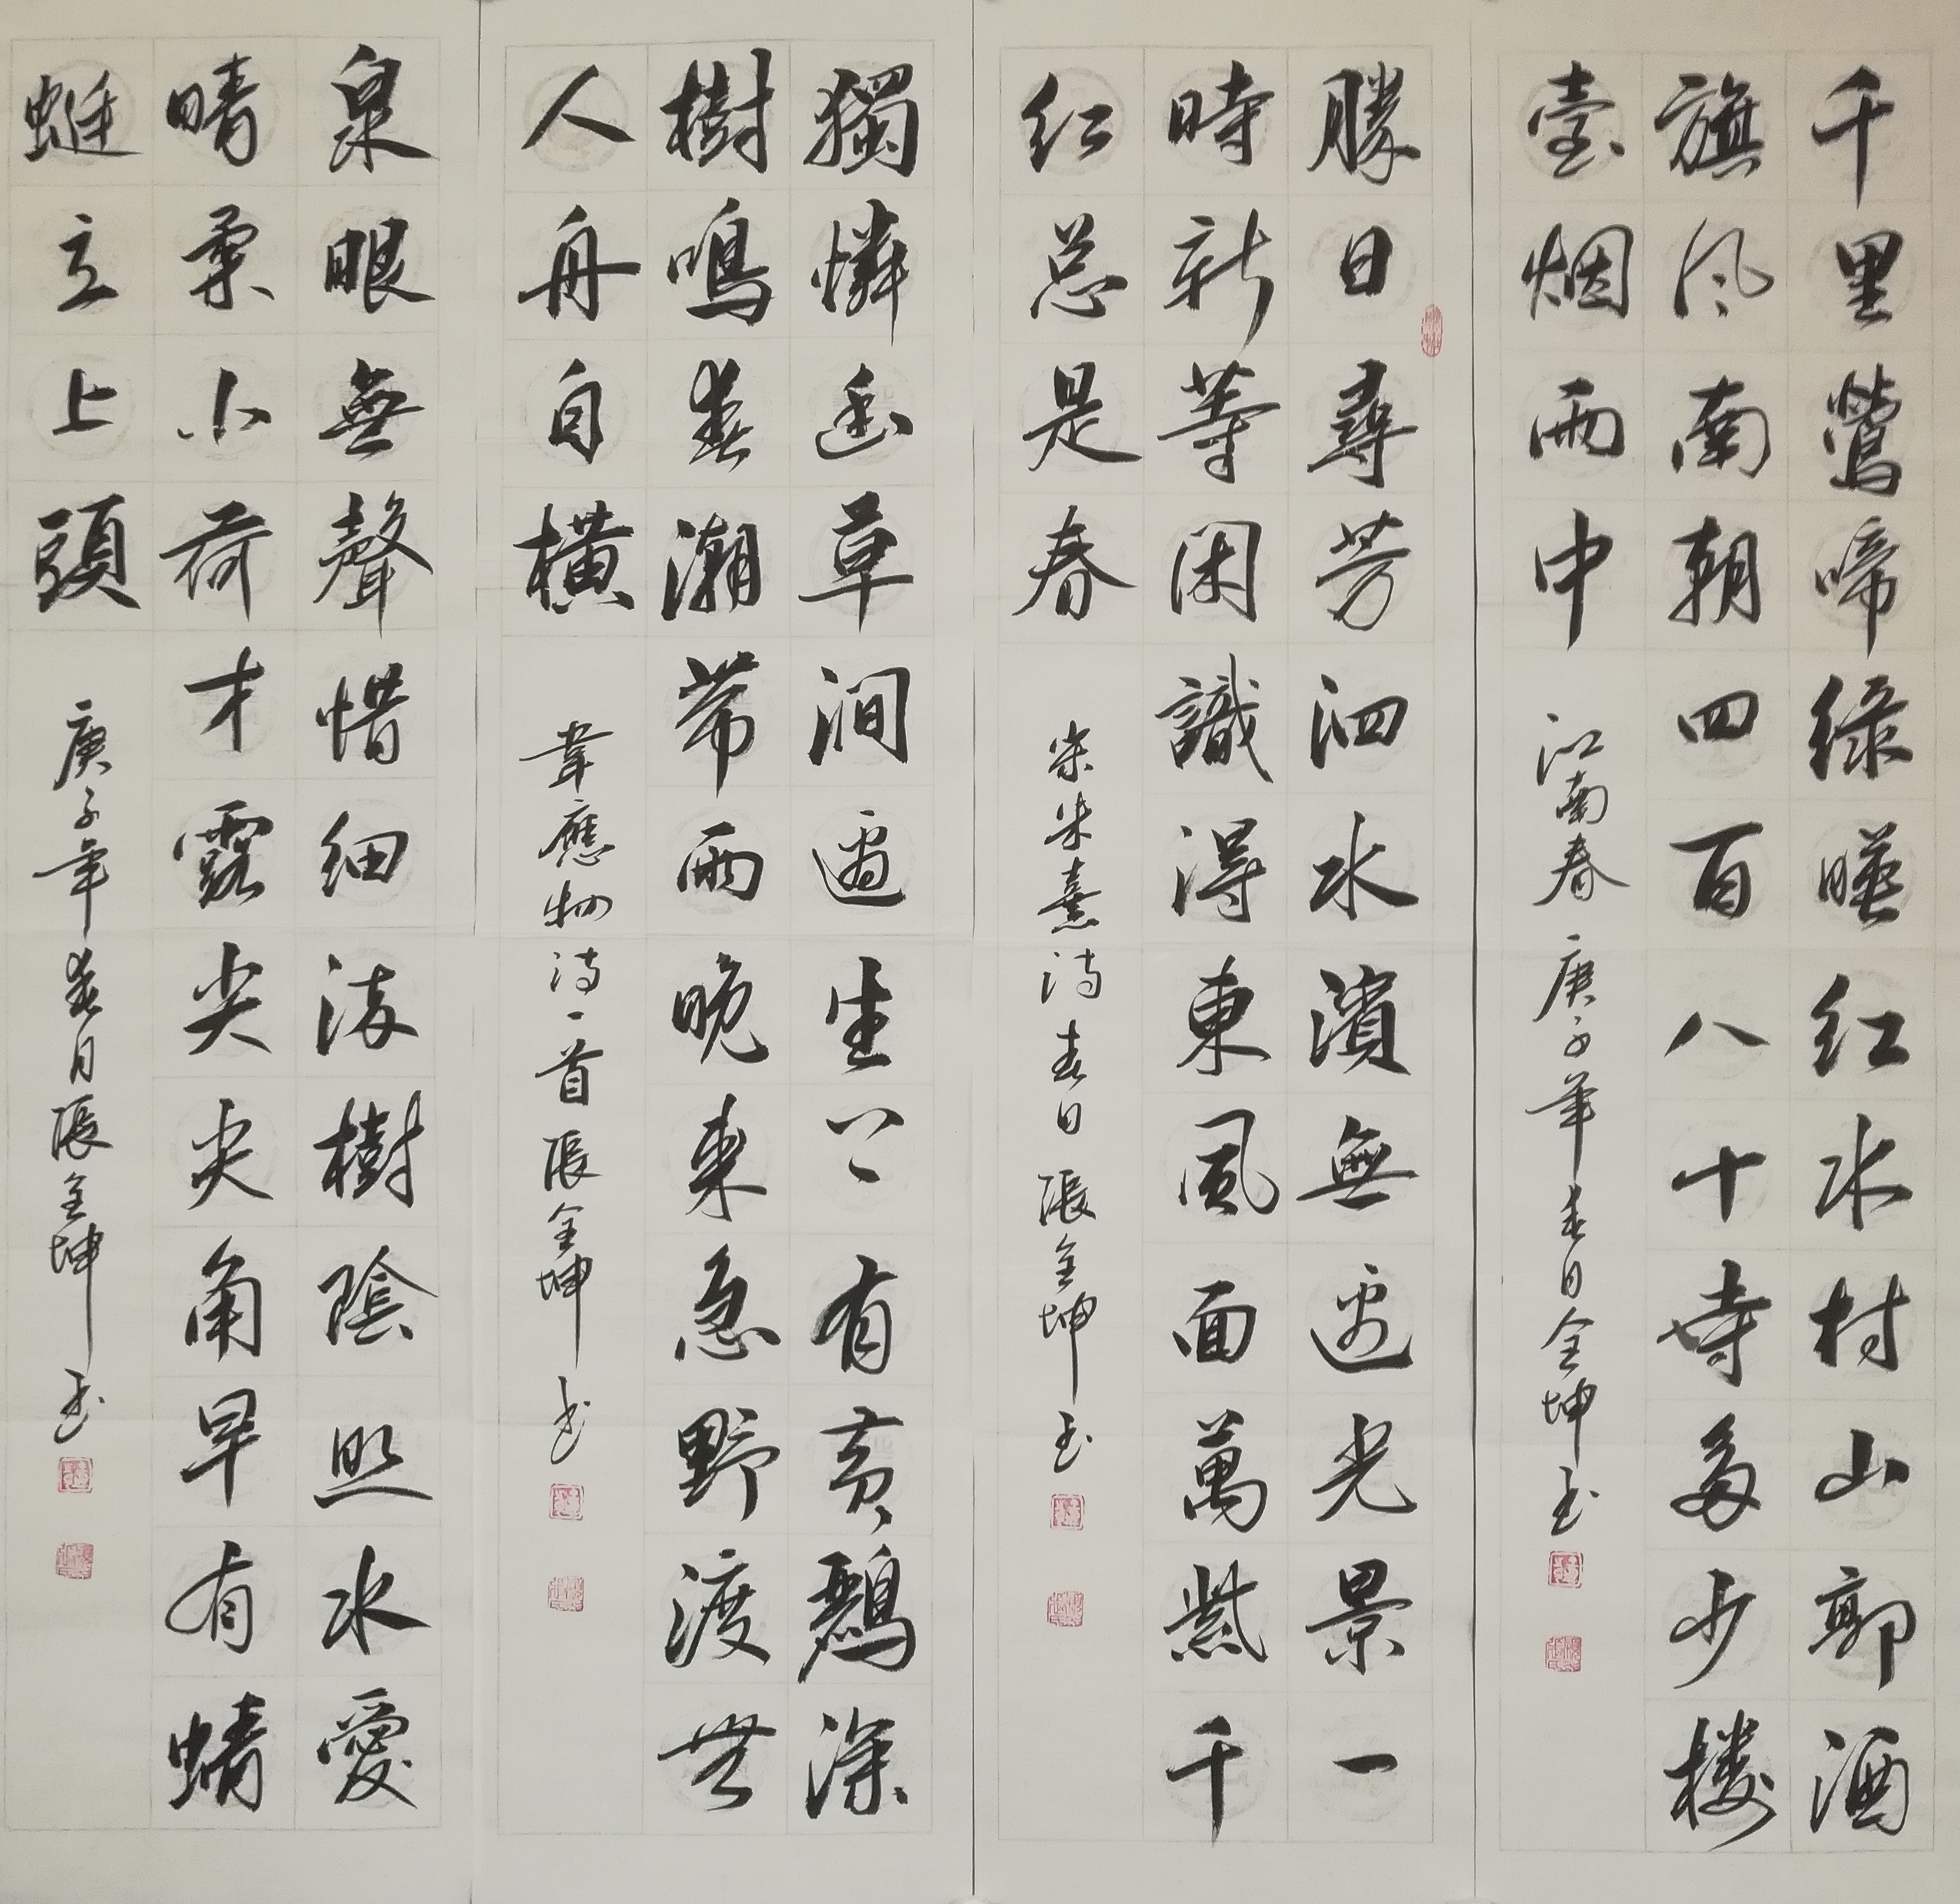 千里鶯啼綠暎红水村山郭酒
旗风南朝四百八十寺多少楼
臺烟雨中
江南春 庚子年春日全坤书
勝日尋芳泗水濱無邊光景一
時新等闲識得東風面萬紫千
红总是春
宋朱熹诗春日 張全坤书
獨憐幽草澗邊生上有黄鸝深
樹鳴春潮带雨晚来急野渡無
人舟自橫
韋應物诗一首 張全坤书
泉眼無聲惜细流樹陰照水愛
晴柔小荷才露尖尖角早有蜻
蜓立上頭
庚子年春月張全坤书